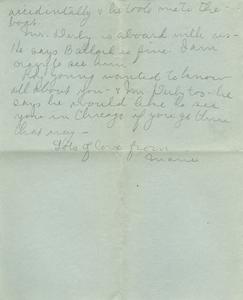 accidentally & his tools into the -
boat.
Mr. Derby is aboard with us -
He says Ballard is fine. I am
crazy to see him
Roy Young wanted to know
all about you - & Mr. Derby too - he
says he would like to see
you in Chicago if you go thru
that way -
Lots of love from
Marie